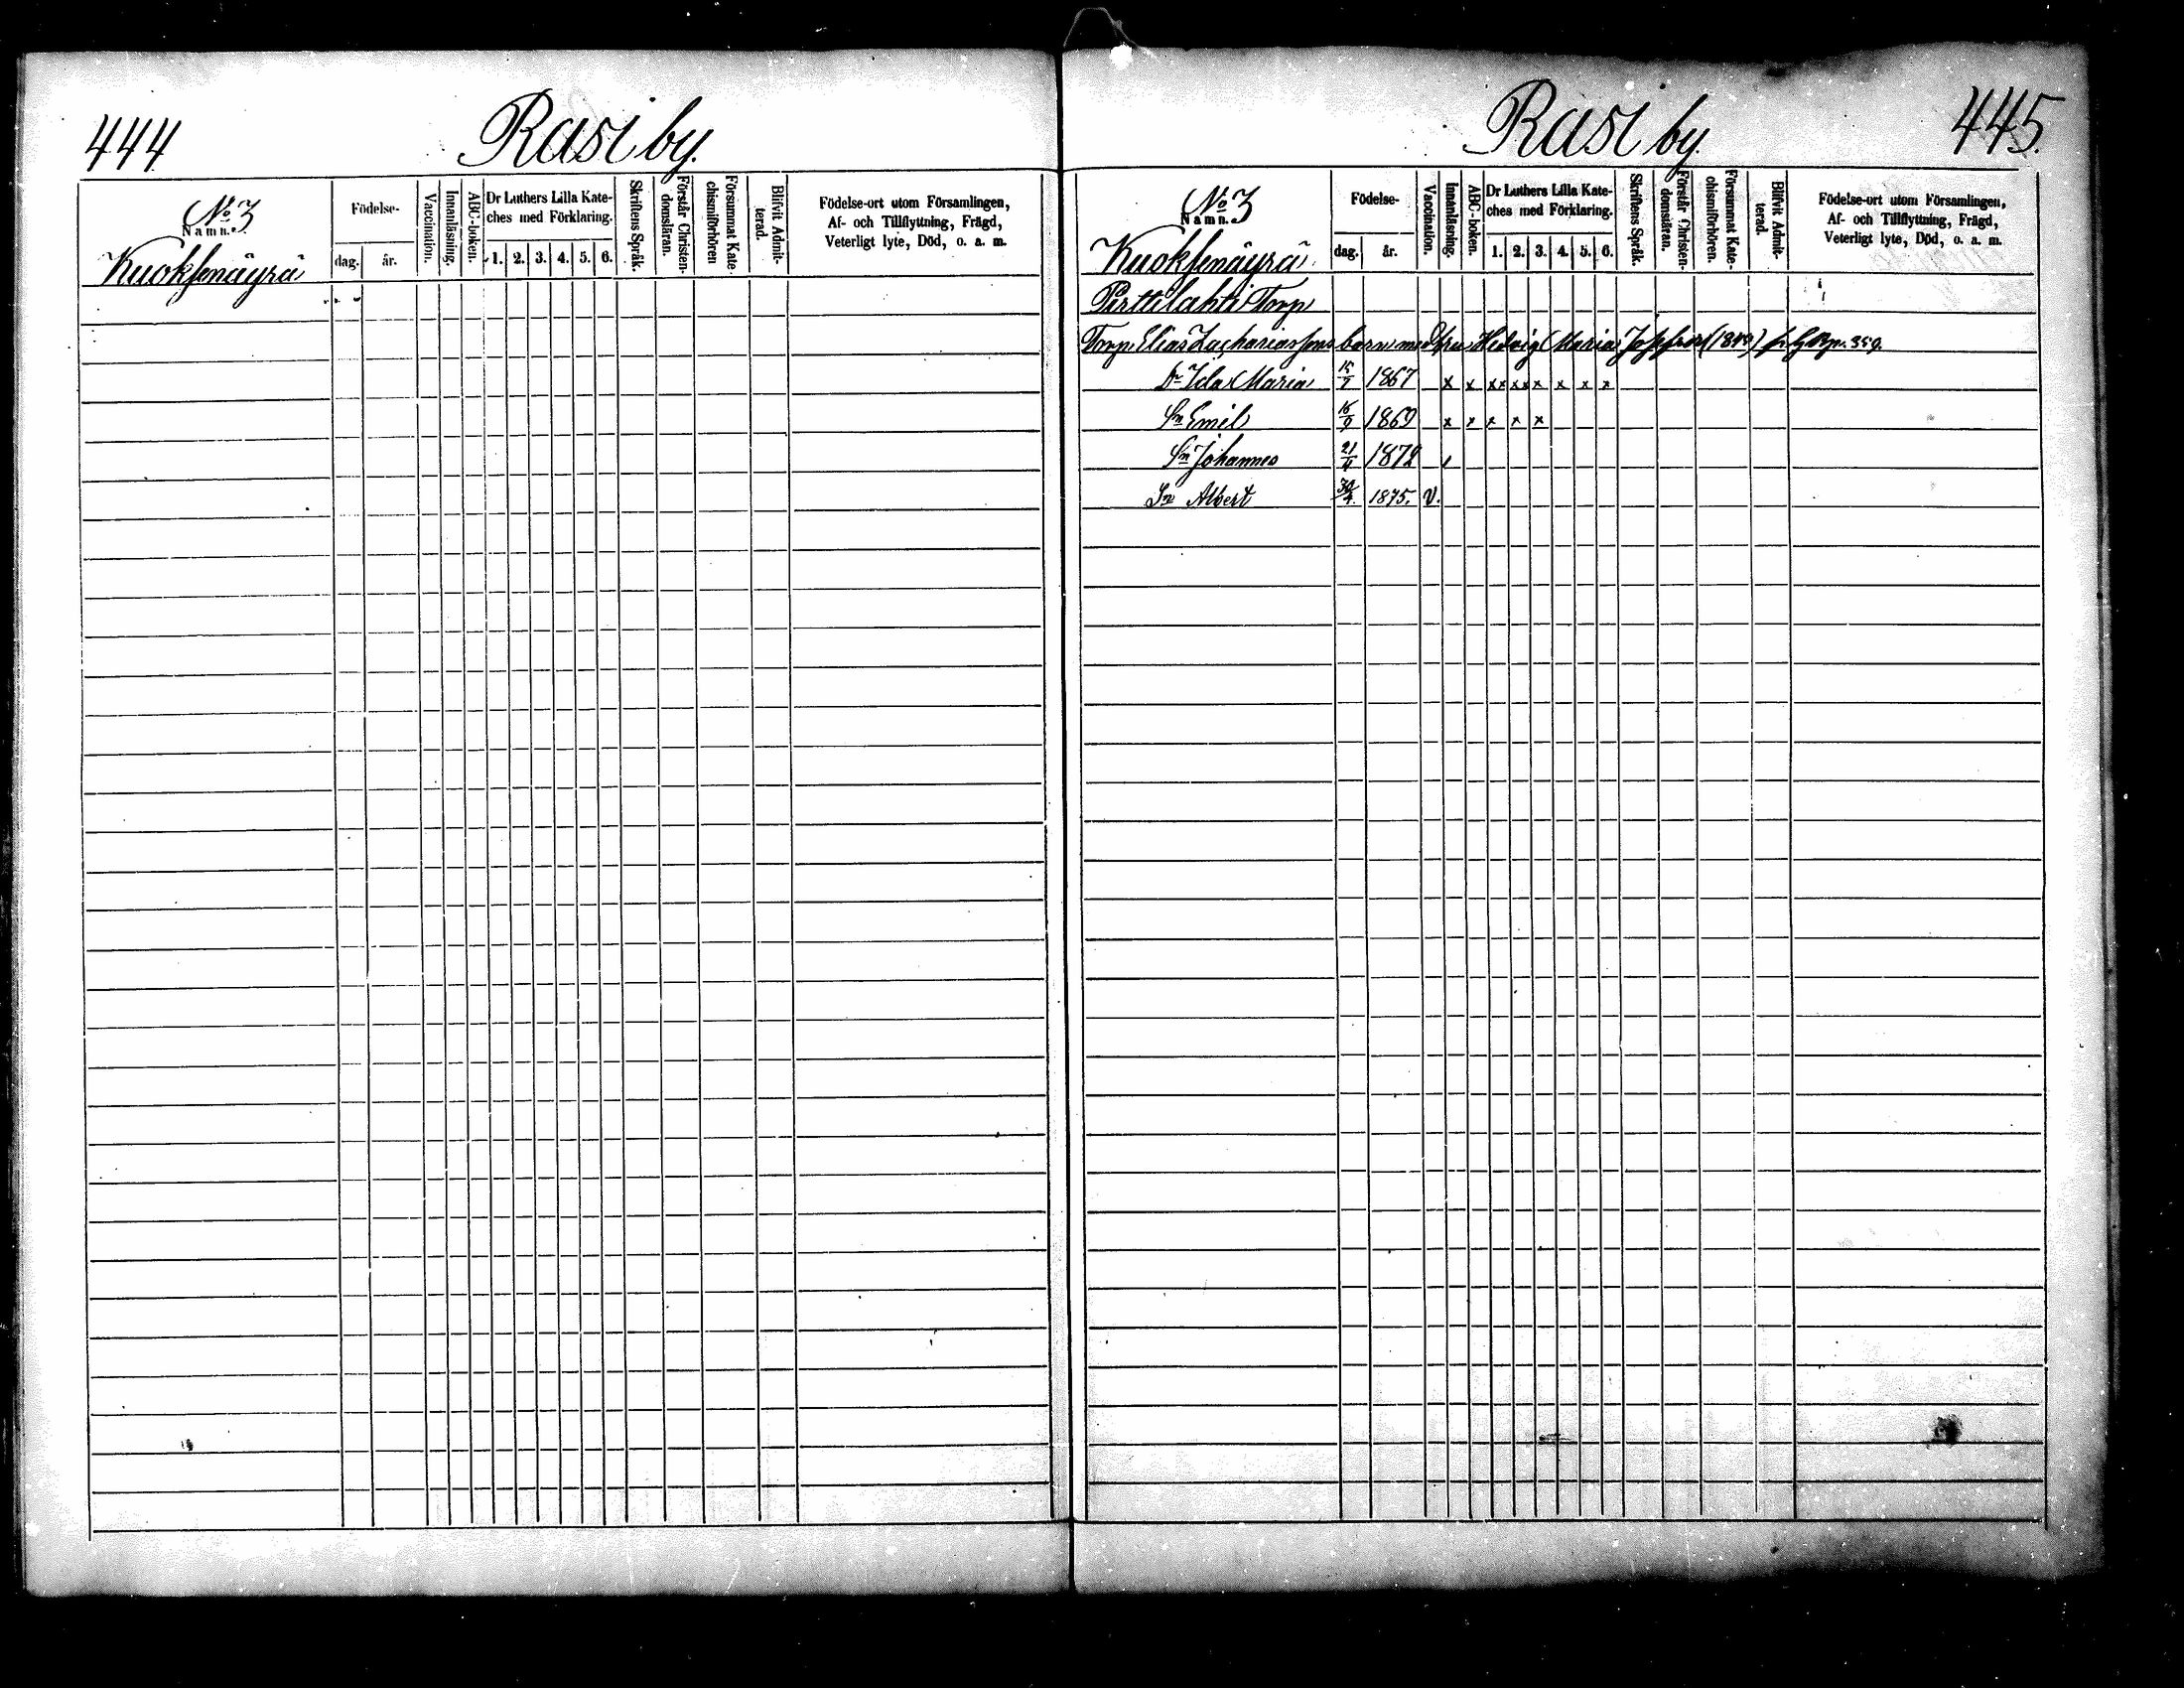 444
Rasi by.
No 3
Namn.
Kuoksenäyrä
Födelse-
dag.
år.
Vaccination.
Innanläsning.
ABC-boken.
Dr Luthers Lilla Kate-
ches med Förklaring.
1. 2. 3. 4. 5. 6.
Skriftens Språk.
Förstår Christen-
domsläran.
Försummat Kate-
chismiförhören
Blifvit Admit-
terad.
Födelse-ort utom Församlingen,
Af- och Tillflyttning, Frägd,
Veterligt lyte, Död, o. a. m.
Rasi by.
445.
No 3
Namn.
Kuoksenäyrä
Födelse-
dag.
år.
Vaccination.
Innanläsning.
ABC-boken.
Dr Luthers Lilla Kate-
ches med Förklaring.
1. 2. 3. 4. 5. 6.
Skriftens Språk.
Förstår Christen-
domsläran.
Försummat Kate-
chismiförhören.
Blifvit Admit-
terad.
Födelse-ort utom Församlingen,
Af- och Tillflyttning, Frägd,
Veterligt lyte, Död, o. a. m.
Perttilahti Torp
Torp. Elias Zachariassons barn med Hedvig Maria
Dr Ida Maria 1867 x x xx xx x x x x
Sn Emil 1869 x x x x x
Sn Johannes 21/4 1872
Sn Albert 30/4. 1875. V.